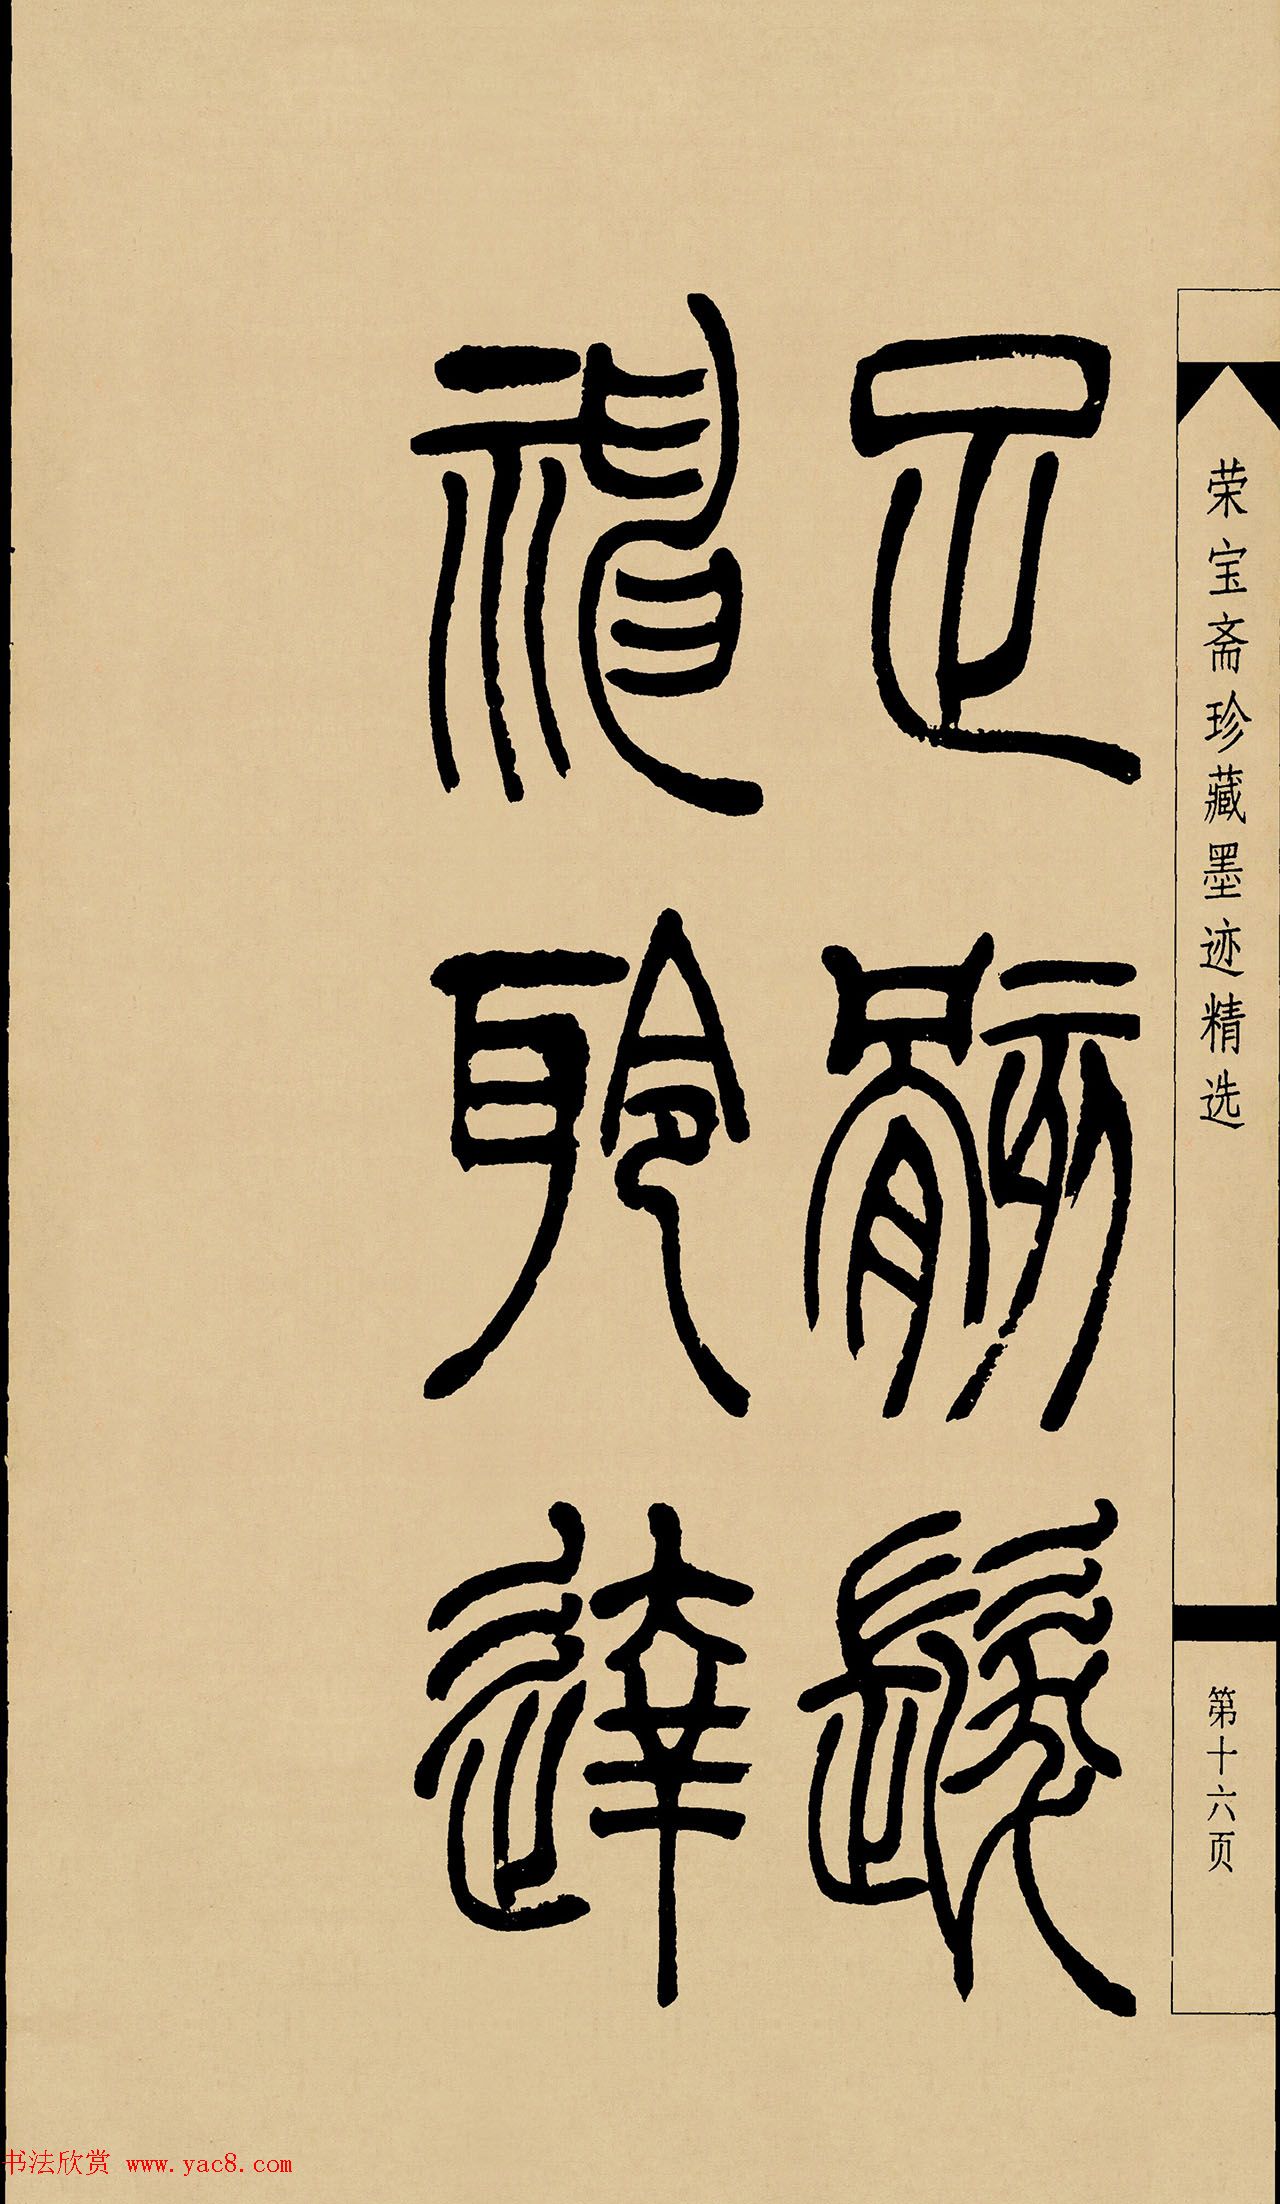 荣宝斋珍藏墨迹精选
第十六页
足骸髮
神聆達
书法欣赏 www.yac8.com